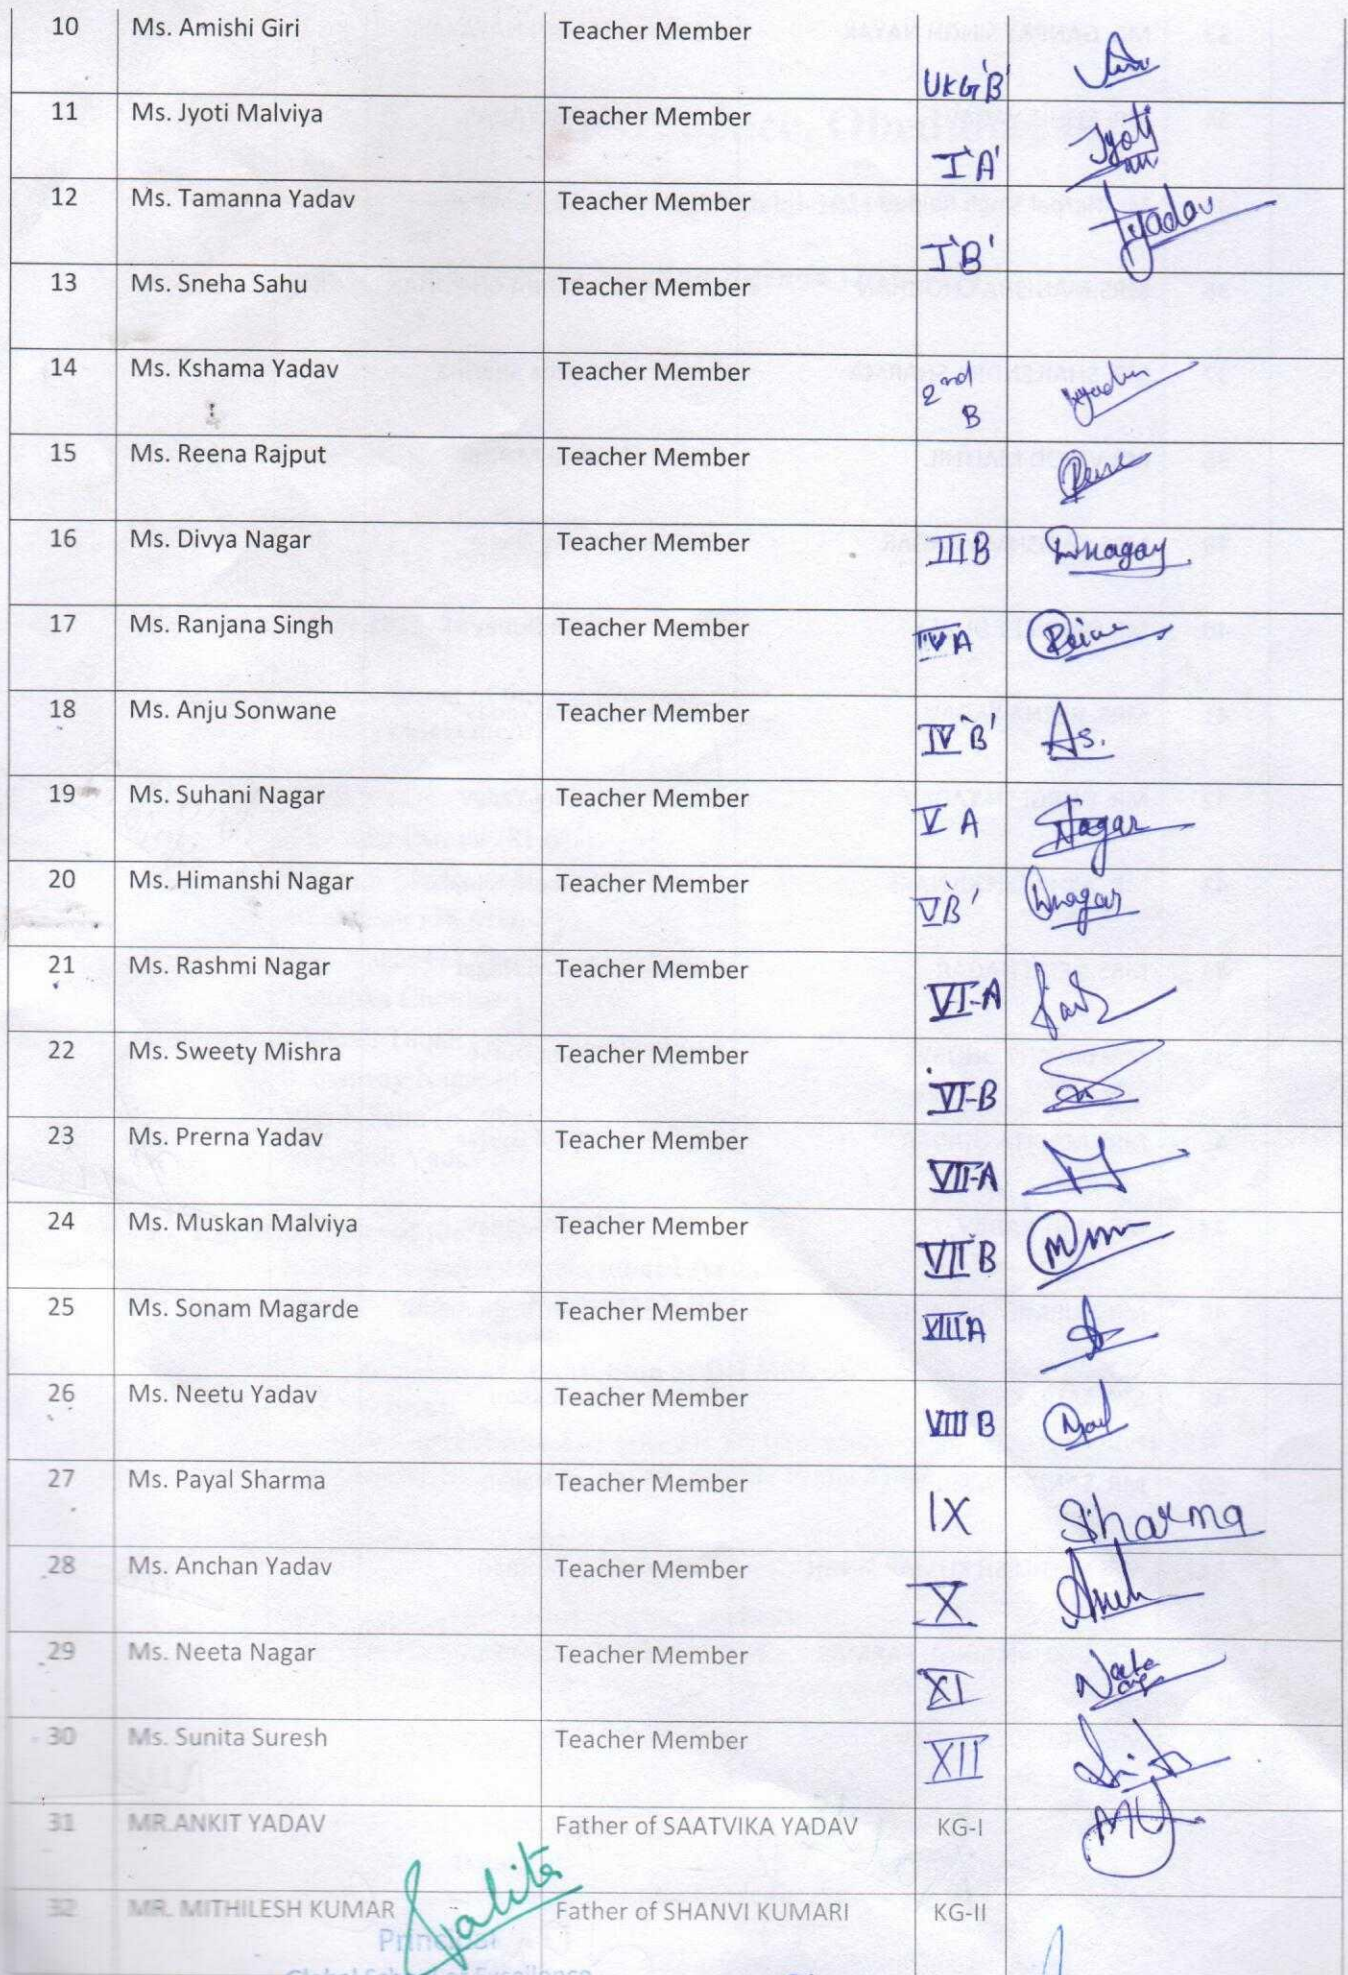 10 Ms. Amishi Giri Teacher Member UKG 'B'
11 Ms. Jyoti Malviya Teacher Member I 'A' Jyoti
12 Ms. Tamanna Yadav Teacher Member I 'B' Tyadav
13 Ms. Sneha Sahu Teacher Member
14 Ms. Kshama Yadav Teacher Member 2nd B
15 Ms. Reena Rajput Teacher Member
16 Ms. Divya Nagar Teacher Member III B Dnagar
17 Ms. Ranjana Singh Teacher Member IV A
18 Ms. Anju Sonwane Teacher Member IV 'B' As.
19 Ms. Suhani Nagar Teacher Member V A Nagar
20 Ms. Himanshi Nagar Teacher Member V 'B' Nagar
21 Ms. Rashmi Nagar Teacher Member VI-A
22 Ms. Sweety Mishra Teacher Member VI-B
23 Ms. Prerna Yadav Teacher Member VII-A
24 Ms. Muskan Malviya Teacher Member VII B
25 Ms. Sonam Magarde Teacher Member VIII A
26 Ms. Neetu Yadav Teacher Member VIII B
27 Ms. Payal Sharma Teacher Member IX Sharma
28 Ms. Anchan Yadav Teacher Member X
29 Ms. Neeta Nagar Teacher Member XI
30 Ms. Sunita Suresh Teacher Member XII
31 MR.ANKIT YADAV Father of SAATVIKA YADAV KG-I
32 MR. MITHILESH KUMAR Father of SHANVI KUMARI KG-II
Lalita
Principal
Global School of Excellence